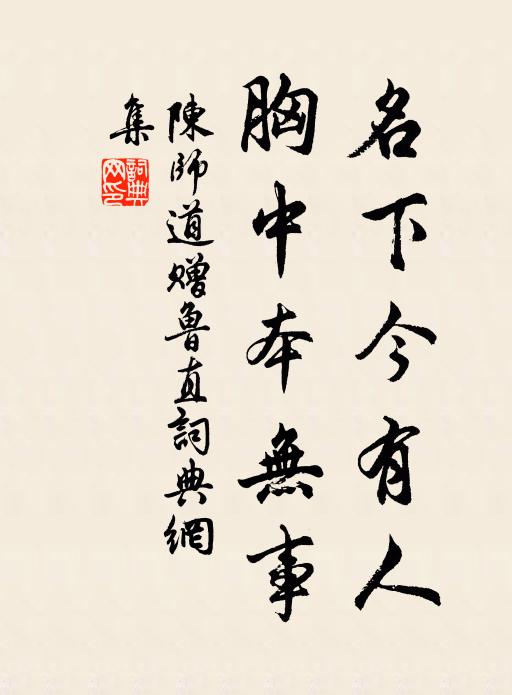 名下今有人
胸中本無事
陳師道贈魯直詞典網
集
詞典
网印